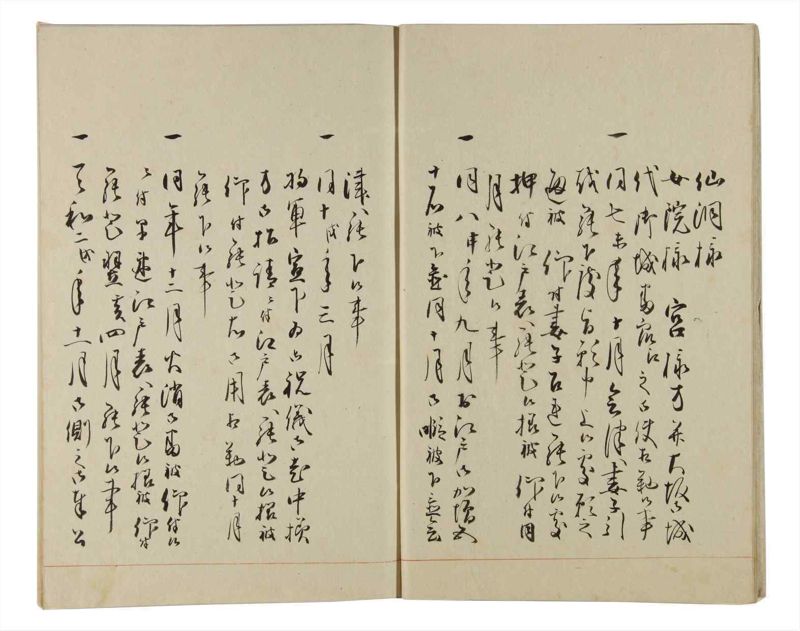 仙洞様
女院様 宮様方并大坂御城
代御城番衆江之御使相勤候事
一 同七未年十月会津ヘ妻子引
越罷下度旨願申上候処願之
通被 仰付妻子召連罷下候処
押付江戸表ヘ罷登候様被 仰付同
月罷登候事
一 同八申年九月於江戸御加増五
十石被下置同十月御暇被下
一 同十戌年三月
将軍宣下為御祝儀
方御招請ニ付江戸表ヘ罷登候様被
仰付罷登右御用相勤同十月
罷下候事
一 同年十二月火消御番被 仰付候
ニ付早速江戸表ヘ罷登候様被 仰付
罷登翌亥四月罷下候事
一 天和二戌年十二月御側之御奉公